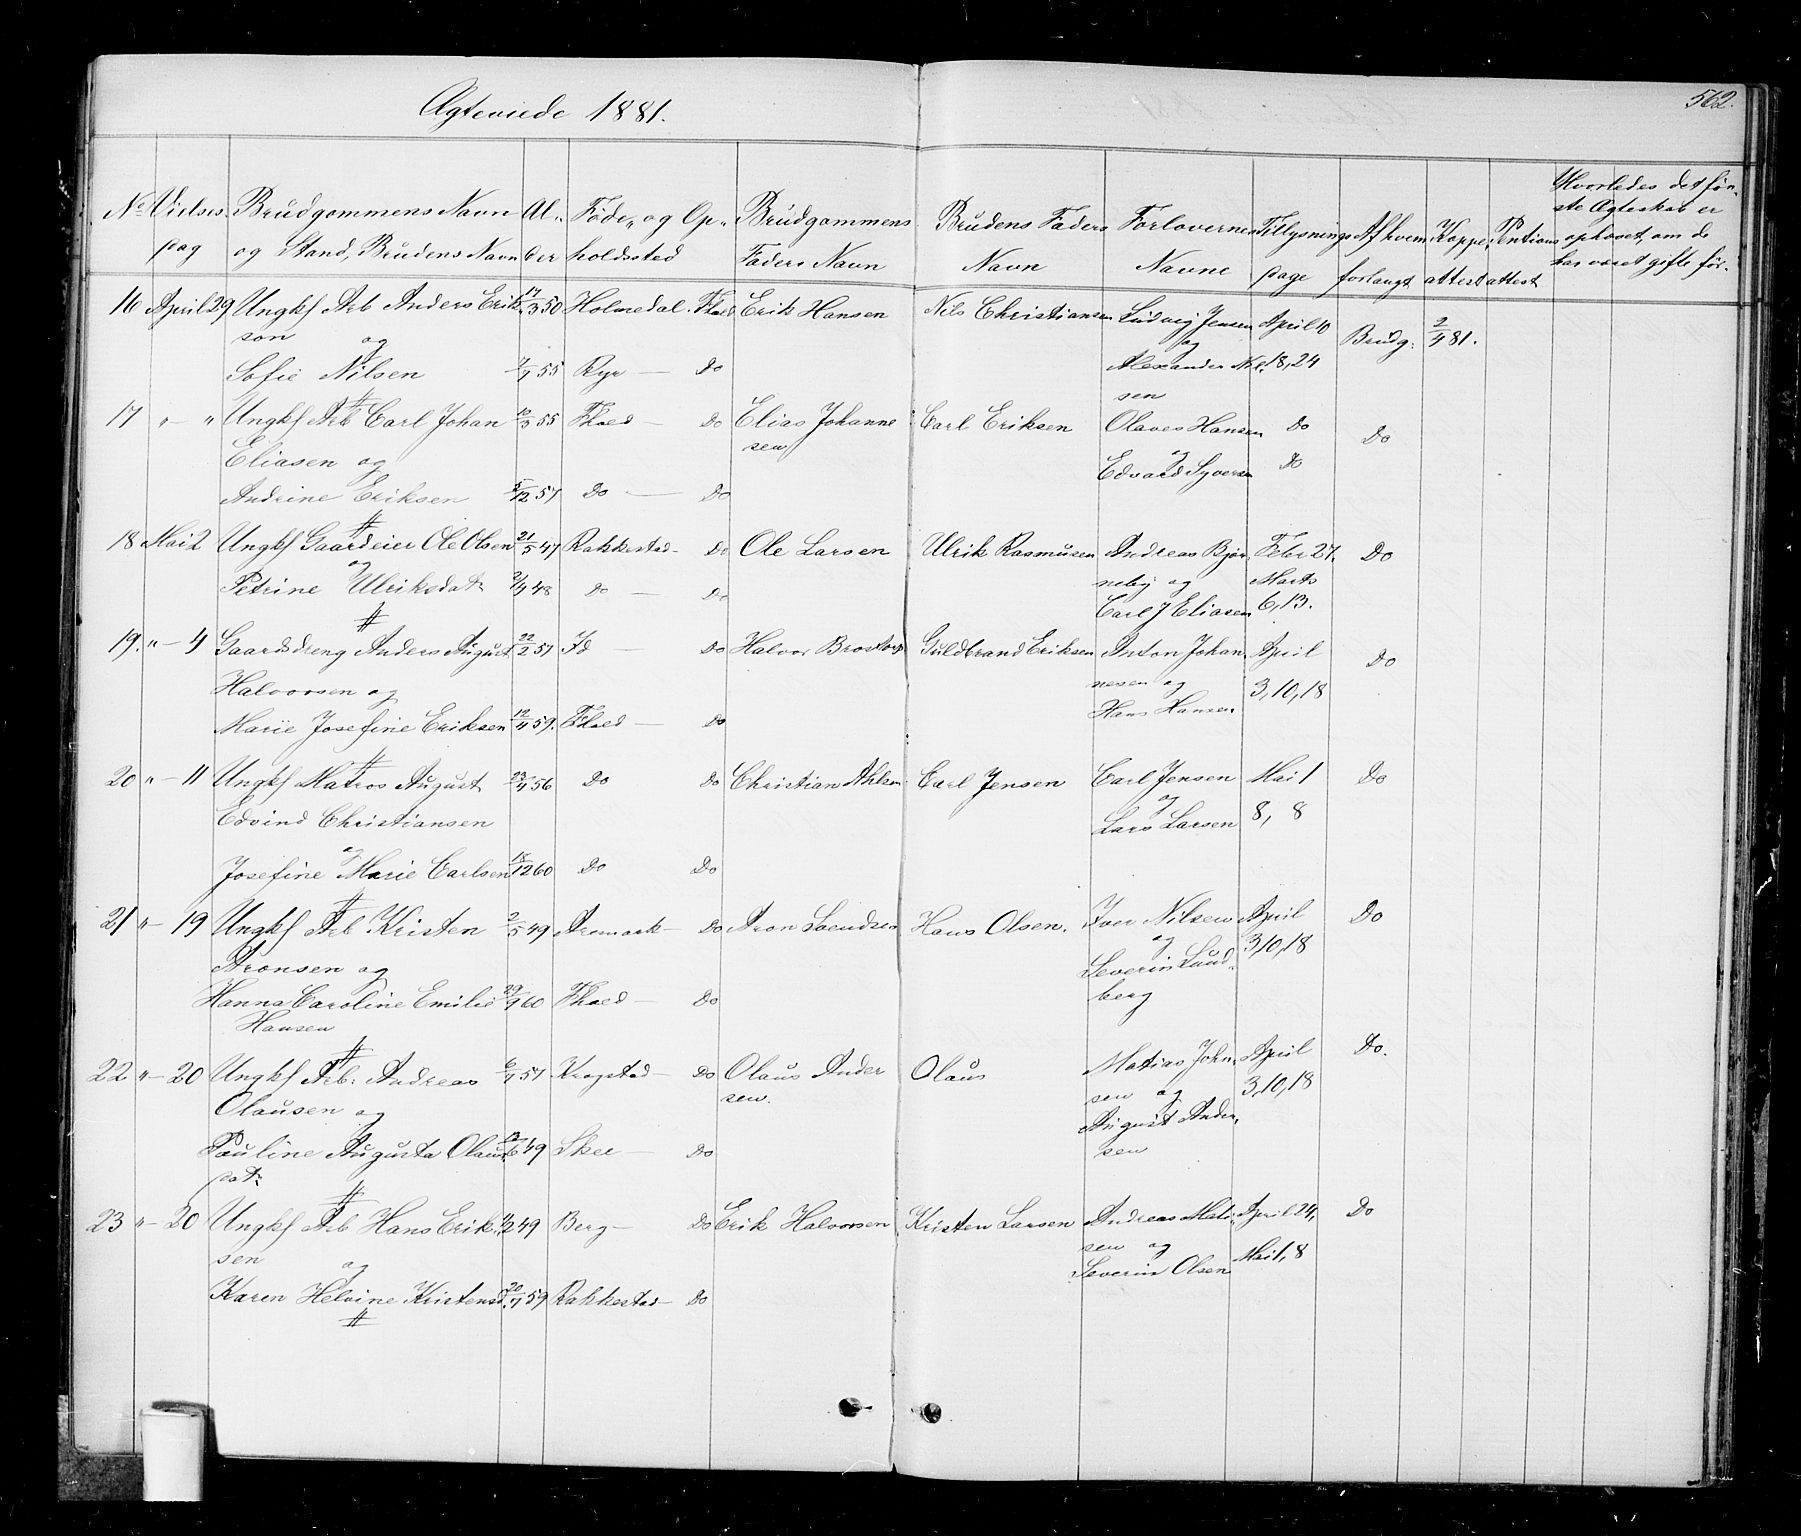 Ægteviede 1881.
562.
No Vielses Brudgommens Navn Al- Føde- og Op- Brudgommens Brudens Faders Forlovernes Tillysnings Af hvem Koppe- Hvorledes det før-
dag og Stand, Brudens Navn der holdssted Faders Navn Navn Navne dage forlangt attest attest ste Ægteskab er
ophævet, om de
har været gifte før.
16 April 29 Ungkf Arb Anders Erik- 3 50 Holmedal Fhald Erik Hansen Nils Christiansen Ludvig Jensen April 10 Brudg. 2/4 81.
son og og 18, 24
Sofie Nilsen 55 Do Alexander Nil-
sen
17 " " Ungkf Arb Carl Johan 10/3 55 Fhald Do Elias Johanne Carl Eriksen Olaves Hansen Do Do
Eliasen og sen og
Andrine Eriksen 5/12 57 Do Do Edvard Syversen Do
18 Mai 2 Ungkf Gaardeier Ole Olsen 21/5 47 Rakkestad Do Ole Larsen Ulrik Rasmusen Andreas Bjør- Febr 27. Do
og neby og Marts
Petrine Ulriksdat 48 Do Do Carl J Eliasen 6, 13.
19. " 4 Gaardsdreng Anders August 22/2 57 Id Do Halvor Guldbrand Eriksen Anton Johan- April Do
Halvorsen og nesen og 3, 10, 18
Marie Josefine Eriksen 12/4 59. Fhald Do Hans Hansen
20 " 11 Ungkf Matros August 23/4 56 Do Do Christian Carl Jensen Carl Jensen Mai 1 Do
Edvind Christiansen og 8, 8
og Lars Larsen
Josefine Marie Carlsen 12 60 Do Do
21 " 19 Ungkf Arb Kristen 2/5 49 Aremark Do Aron Svendsen Hans Olsen. Iver Nilsen April Do
Aronsen og og 3, 10, 18
Hanna Caroline Emilie 29 60 Fhald Do Severin Lund-
Hansen berg
22 " 20 Ungkf Arb: Andreas 57 Krogstad Do Olaus Ander Olaus Matias John- April Do.
Olausen og sen. sen og 3, 10, 18
Pauline Augusta Olaus- 6 49 Skee Do August Ander-
dat sen
23 " 20 Ungkf Arb Hans Erik- 2 49 Berg Do Erik Halvorsen Kristen Larsen Andreas Mati- April 24, Do
sen og sen og Mai 1, 8
Karen Helvine Kristensd. 20 59 Rakkestad Do Severin Olsen